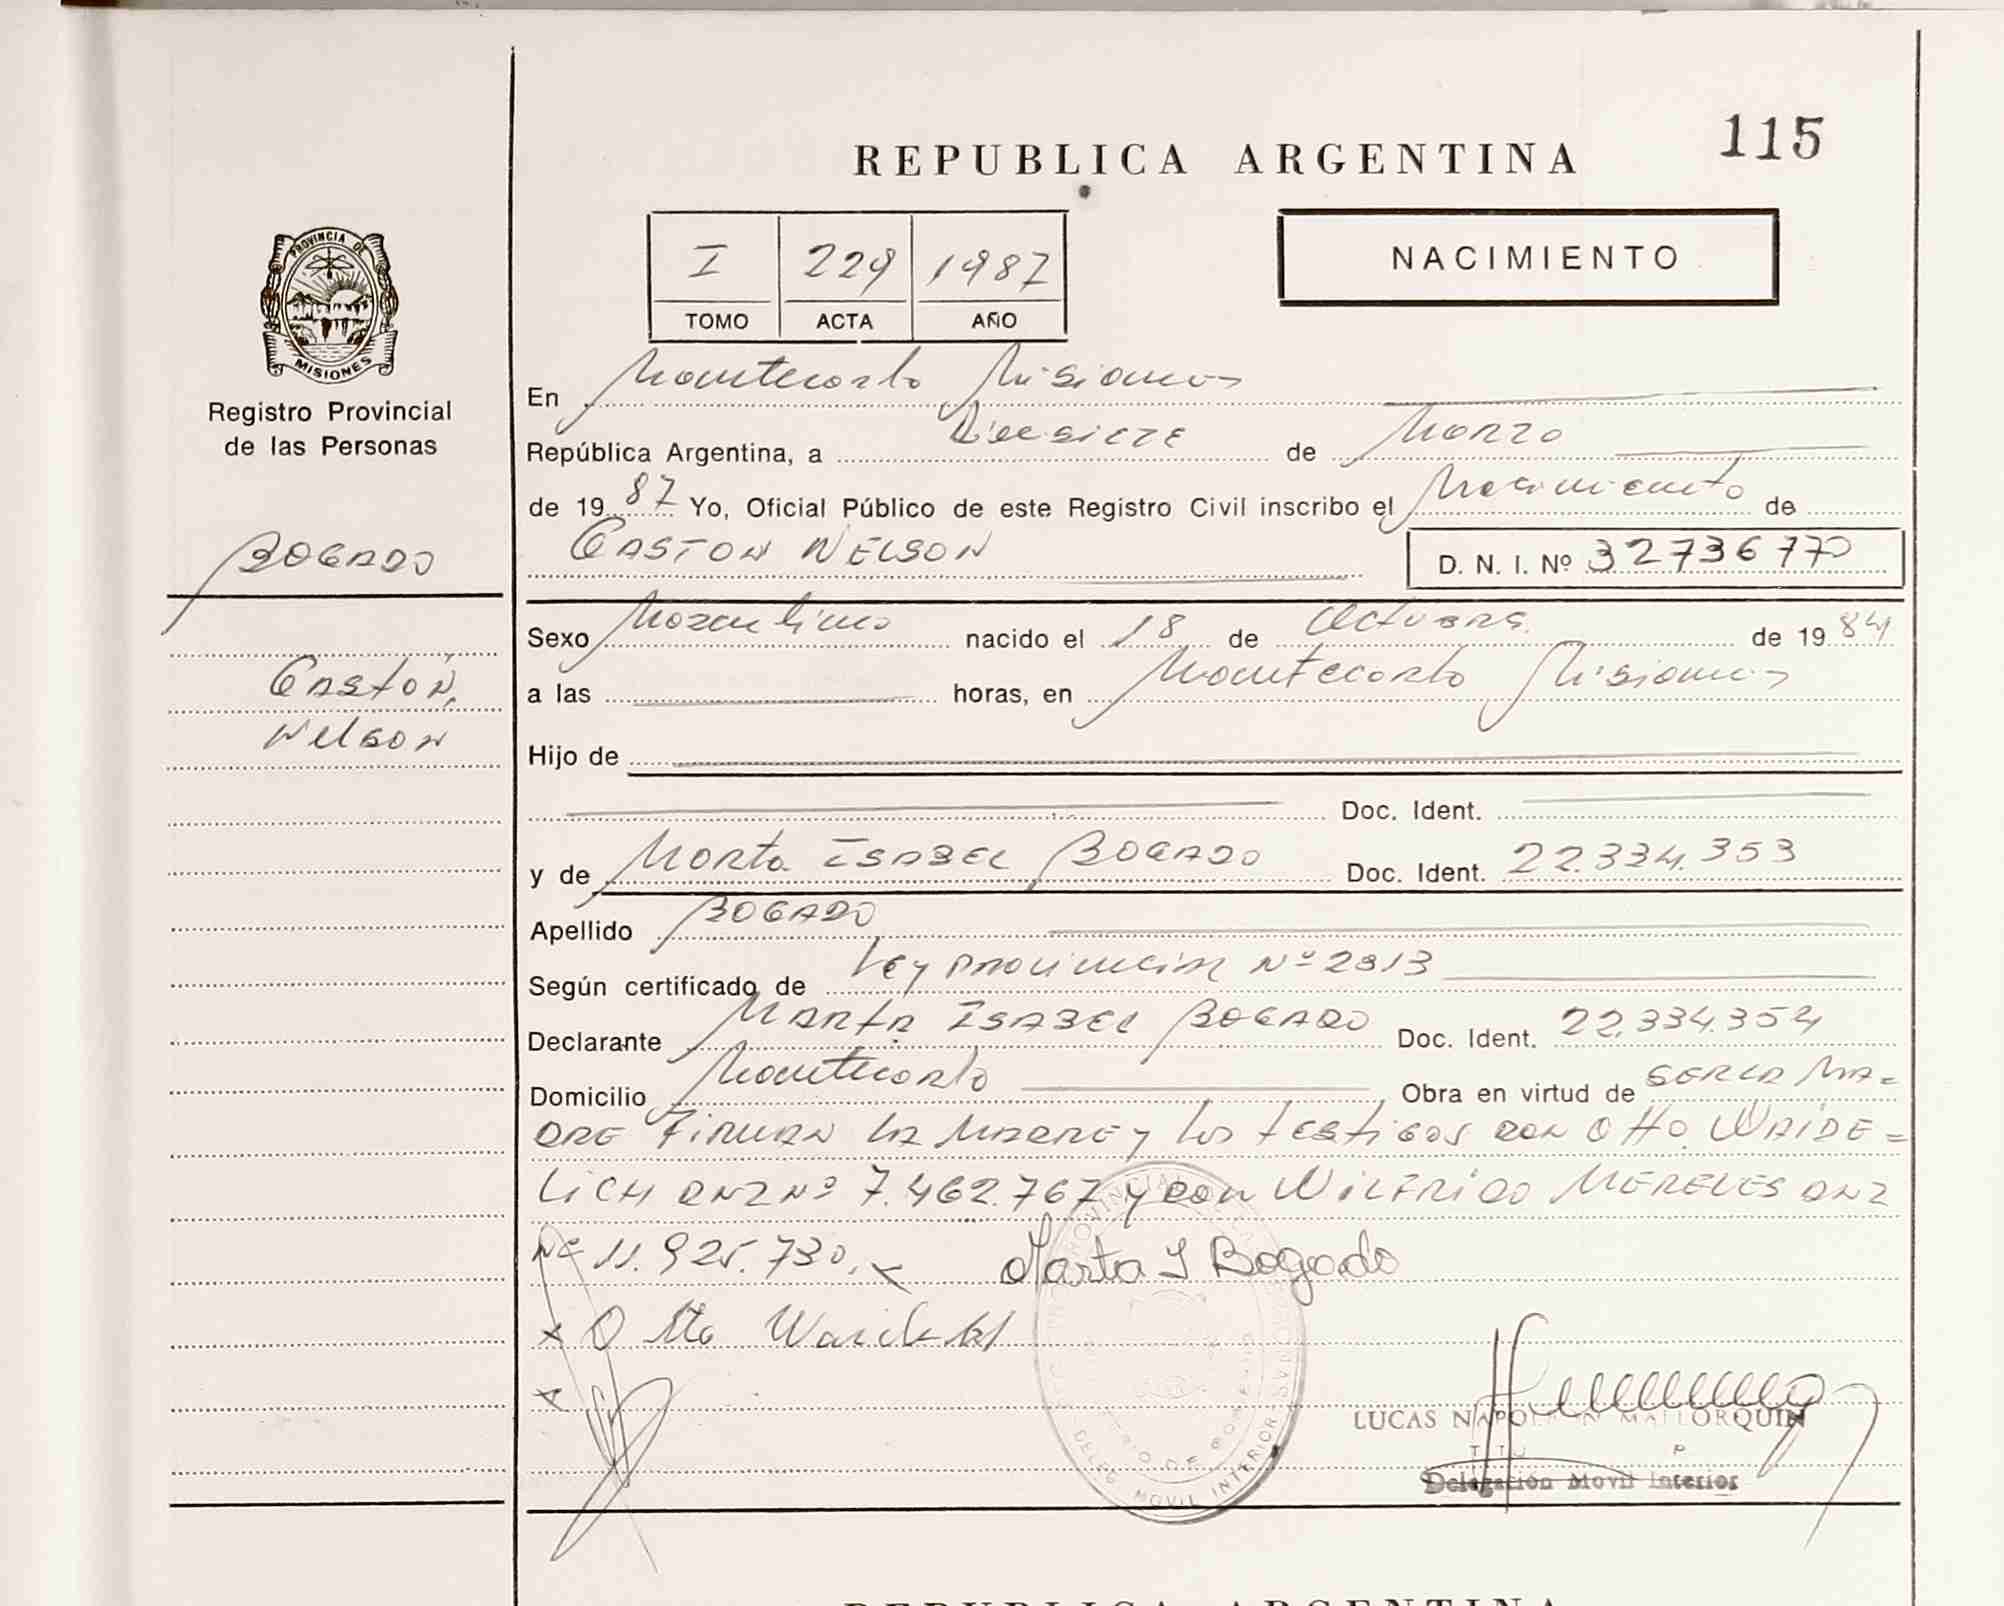 REPUBLICA ARGENTINA
115
I 229 1987
TOMO ACTA AÑO
NACIMIENTO
PROVINCIA DE
MISIONES
Registro Provincial
de las Personas
BOGADO
Gastón,
Nelson
En Montecarlo Misiones
República Argentina, a Diecsiete de Marzo
de 1987 Yo, Oficial Público de este Registro Civil inscribo el Nacimiento de
GASTON NELSON D. N. I. Nº 32736770
Sexo Mazculino nacido el 18 de Octubre de 1984
a las horas, en Montecarlo Misiones
Hijo de
Doc. Ident.
y de Marta ISABEL BOGADO Doc. Ident. 22.334.353
Apellido BOGADO
Según certificado de Ley Provincial Nº 2813
Declarante MARTA ISABEL BOGADO Doc. Ident. 22.334.354
Domicilio Montecarlo Obra en virtud de SER LA MA=
DRE Firman la MADRE y los testigos don Otto WAIDE=
LICH DNI Nº 7.462.767 y don WILFRIDO MERELES DNI
Nº 11.925.730.
Marta I Bogado
Otto
LUCAS NAPOLEON MALLORQUIN
Delegación Movil Interior
DELEG. MOVIL INTERIOR
REPUBLICA ARGENTINA